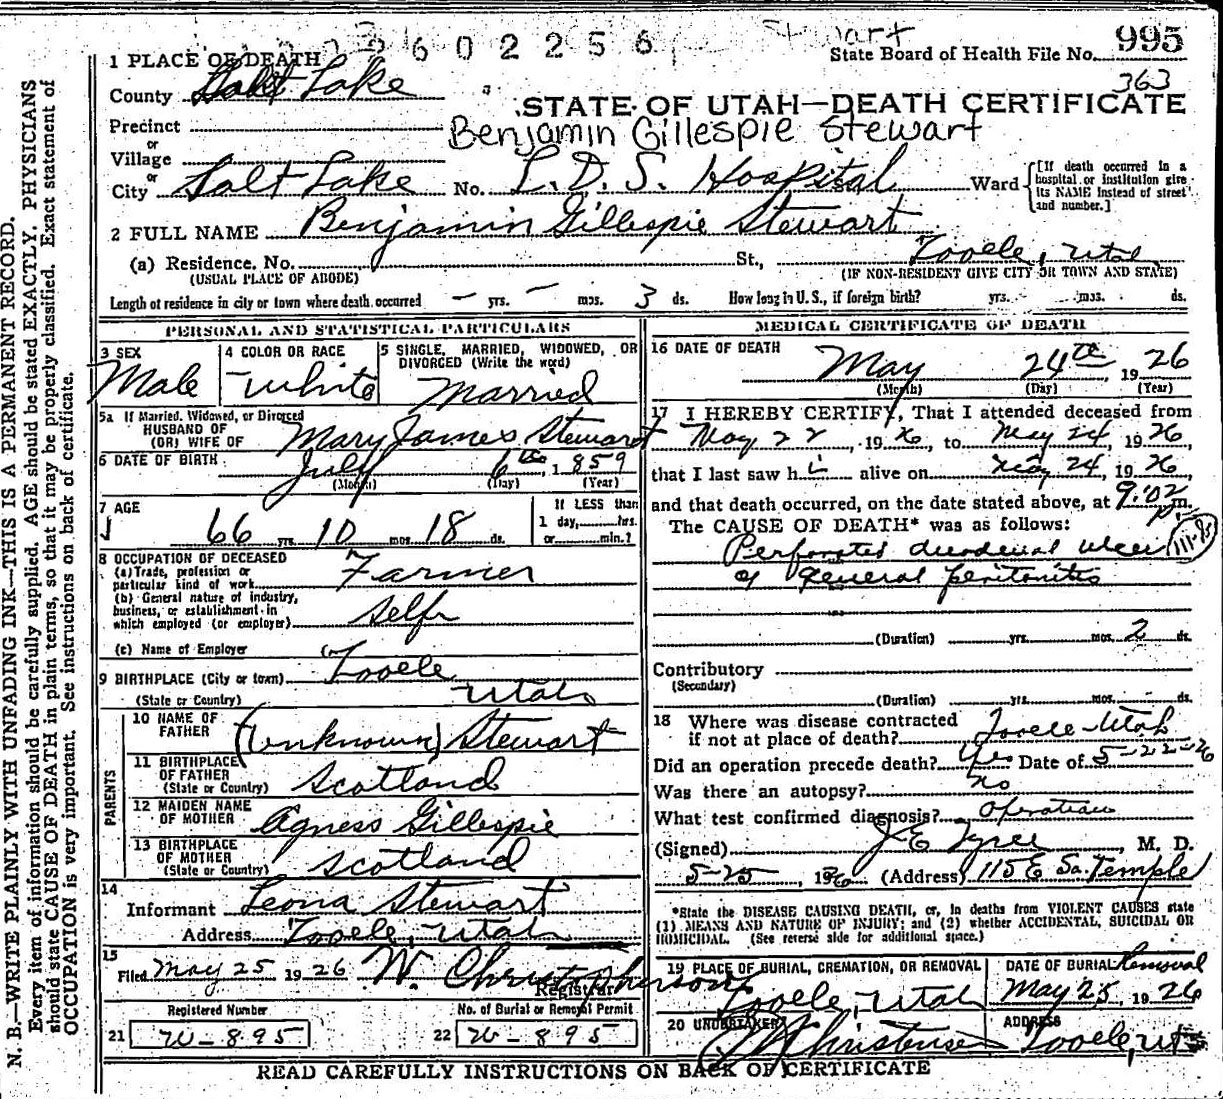 2602256 Stewart
State Board of Health File No. 995
363
1 PLACE OF DEATH
County Salt Lake
STATE OF UTAH—DEATH CERTIFICATE
Precinct
or
Benjamin Gillespie Stewart
Village
or
City Salt Lake No. L.D.S. Hospital Ward [If death occurred in a hospital or institution give its NAME instead of street and number.]
2 FULL NAME Benjamin Gillespie Stewart
(a) Residence, No. St., Tooele, Utah
(USUAL PLACE OF ABODE) (IF NON-RESIDENT GIVE CITY OR TOWN AND STATE)
Length of residence in city or town where death occurred — yrs. — mos. 3 ds. How long in U.S., if foreign birth? yrs. mos. ds.
PERSONAL AND STATISTICAL PARTICULARS
3 SEX
Male
4 COLOR OR RACE
White
5 SINGLE, MARRIED, WIDOWED, OR
DIVORCED (Write the word)
Married
5a If Married, Widowed, or Divorced
HUSBAND OF
(OR) WIFE OF Mary James Stewart
6 DATE OF BIRTH July 6th, 1859
(Month) (Day) (Year)
7 AGE
66 yrs. 10 mos. 18 ds.
If LESS than
1 day, hrs.
or min.?
8 OCCUPATION OF DECEASED
(a) Trade, profession or
particular kind of work Farmer
(b) General nature of industry,
business, or establishment in
which employed (or employer) Self
(c) Name of Employer
9 BIRTHPLACE (City or town) Tooele
(State or Country) Utah
PARENTS
10 NAME OF
FATHER (Unknown) Stewart
11 BIRTHPLACE
OF FATHER
(State or Country) Scotland
12 MAIDEN NAME
OF MOTHER Agness Gillespie
13 BIRTHPLACE
OF MOTHER
(State or Country) Scotland
14
Informant Leona Stewart
Address Tooele, Utah
15
Filed May 25 1926 W. Christopherson
Registrar
Registered Number
21 W-895
No. of Burial or Removal Permit
22 W-895
MEDICAL CERTIFICATE OF DEATH
16 DATE OF DEATH
May 24th, 1926
(Month) (Day) (Year)
17 I HEREBY CERTIFY, That I attended deceased from
May 22, 1926, to May 24, 1926,
that I last saw h i alive on May 24, 1926
and that death occurred, on the date stated above, at 9:02 P.m.
The CAUSE OF DEATH* was as follows:
Perforated duodenal ulcer
general peritonitis
(Duration) yrs. mos. 2 ds.
Contributory
(Secondary)
(Duration) yrs. mos. ds.
18 Where was disease contracted
if not at place of death? Tooele-Utah
Did an operation precede death? Yes Date of 5-22-26
Was there an autopsy? no
What test confirmed diagnosis? Operation
(Signed) J E Tyree, M. D.
5-25, 1926 (Address) 115 E So. Temple
*State the DISEASE CAUSING DEATH, or, in deaths from VIOLENT CAUSES state
(1) MEANS AND NATURE OF INJURY; and (2) whether ACCIDENTAL, SUICIDAL OR
HOMICIDAL. (See reverse side for additional space.)
19 PLACE OF BURIAL, CREMATION, OR REMOVAL
Tooele, Utah
DATE OF BURIAL Removal
May 25, 1926
20 UNDERTAKER
Christensen
ADDRESS
Tooele, Ut
READ CAREFULLY INSTRUCTIONS ON BACK OF CERTIFICATE
N. B.—WRITE PLAINLY WITH UNFADING INK—THIS IS A PERMANENT RECORD.
Every item of information should be carefully supplied. AGE should be stated EXACTLY. PHYSICIANS
should state CAUSE OF DEATH in plain terms, so that it may be properly classified. Exact statement of
OCCUPATION is very important. See instructions on back of certificate.